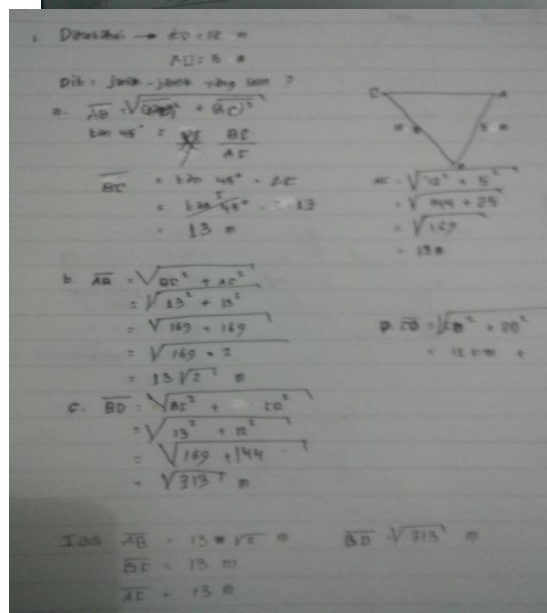 1. Diketahui → CD = 12 m
AD = 5 m
Dit = jarak-jarak yang lain ?
a. AB = √ + (AC)²
tan 45° = BC / AC
BC = tan 45° · AC
= tan 45° · 13
= 13 m
AC = √12² + 5²
= √144 + 25
= √169
= 13 m
b. AB = √BC² + AC²
= √13² + 13²
= √169 + 169
= √169 · 2
= 13√2 m
c. BD = √BC² + CD²
= √13² + 12²
= √169 + 144
= √313 m
Jadi AB = 13 √2 m
BD = √313 m
BC = 13 m
AC = 13 m